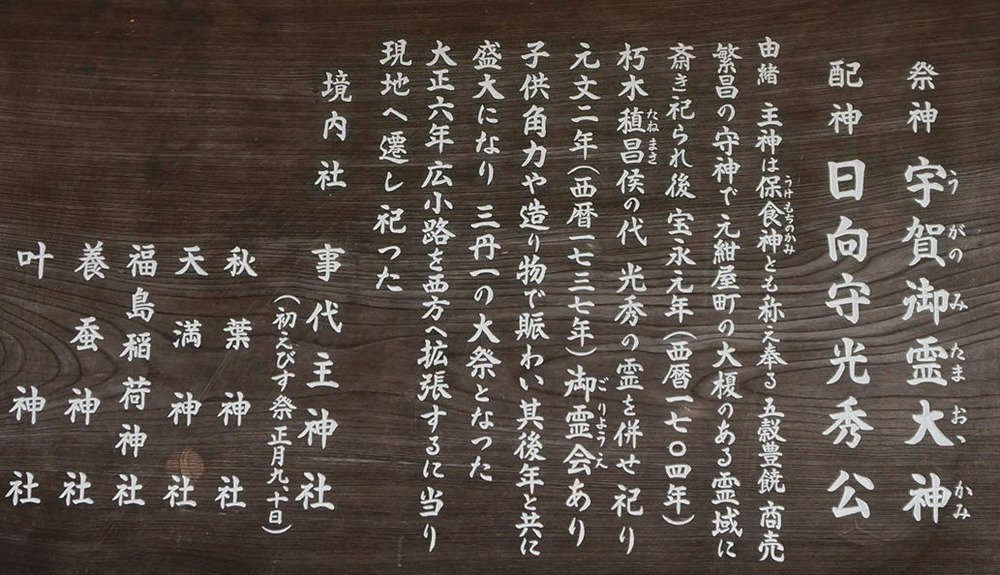 祭神 宇賀御霊大神
うがのみたまおゝかみ
配神 日向守光秀公
由緒 主神は保食神とも称え奉る 五穀豊饒 商売
うけもちのかみ
繁昌の守神で元紺屋町の大榎のある霊域に
斎き祀られ後 宝永元年(西暦一七〇四年)
朽木稙昌侯の代 光秀の霊を併せ祀り
たねまさ
元文二年(西暦一七三七年)御霊会あり
ごりようえ
子供角力や造り物で賑わい其後年と共に
盛大になり 三丹一の大祭となった
大正六年広小路を西方へ拡張するに当り
現地へ遷し祀った
境内社
事代主神社
(初えびす祭 正月九、十日)
秋葉神社
天満神社
福島稲荷神社
養蚕神社
叶神社